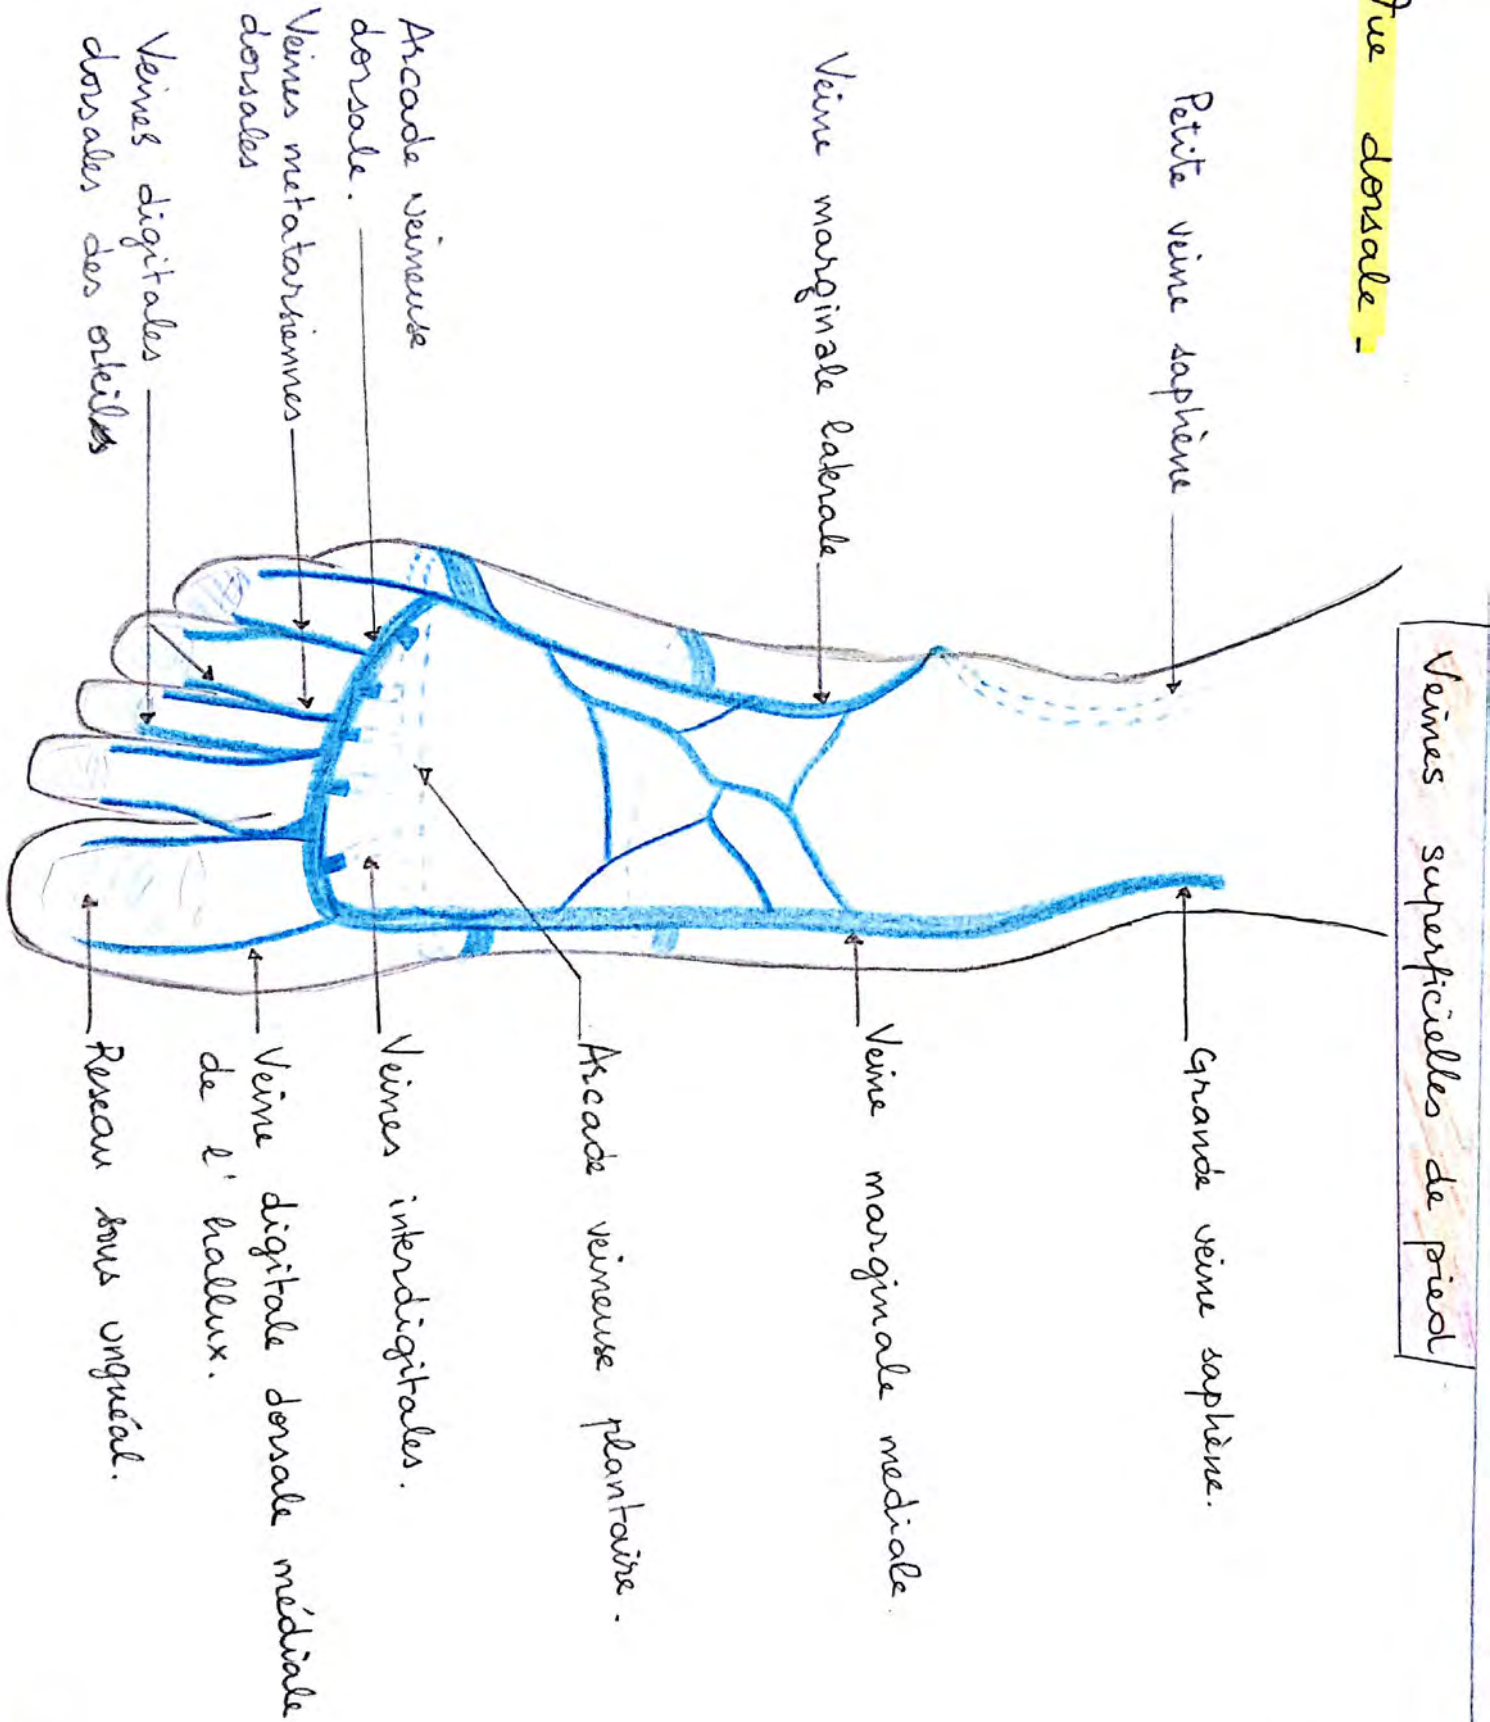 Veines superficielles de pied
Vue dorsale -
Petite veine saphène
Veine marginale laterale
Arcade veineuse
dorsale.
Veines metatarsiennes
dorsales
Veines digitales
dorsales des orteils
Grande veine saphène.
Veine marginale mediale.
Arcade veineuse plantaire.
Veines interdigitales.
Veine digitale dorsale médiale
de l'hallux.
Reseau sous unguéal.